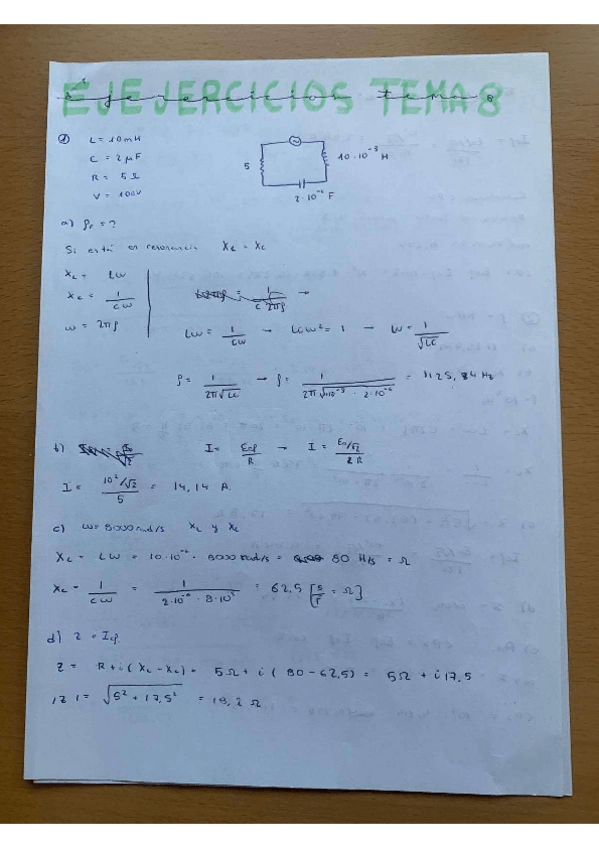 EJEJERCICIOS TEMA 8
1) L = 10mH
C = 2 μF
R = 5 Ω
V = 100V
5
10·10⁻³ H
2·10⁻⁶ F
a) fr = ?
Si está en resonancia XL = Xc
XL = Lω
Xc = 1/cω
ω = 2πf
Lω = 1/cω → LCω² = 1 → ω = 1/√LC
f = 1/2π√LC → f = 1/2π√10·10⁻³ · 2·10⁻⁶ = 1125,84 Hz
b) I = Eef/R → I = E₀/√2 / R
I = 10²/√2 / 5 = 14,14 A
c) ω = 8000 rad/s XL y Xc
XL = Lω = 10·10⁻³ · 8000 rad/s = 80 H/s = Ω
Xc = 1/cω = 1/2·10⁻⁶ · 8·10³ = 62,5 [s/F = Ω]
d) Z = Ief
Z = R + i(XL - Xc) = 5Ω + i(80 - 62,5) = 5Ω + i17,5
|Z| = √5² + 17,5² = 18,2 Ω